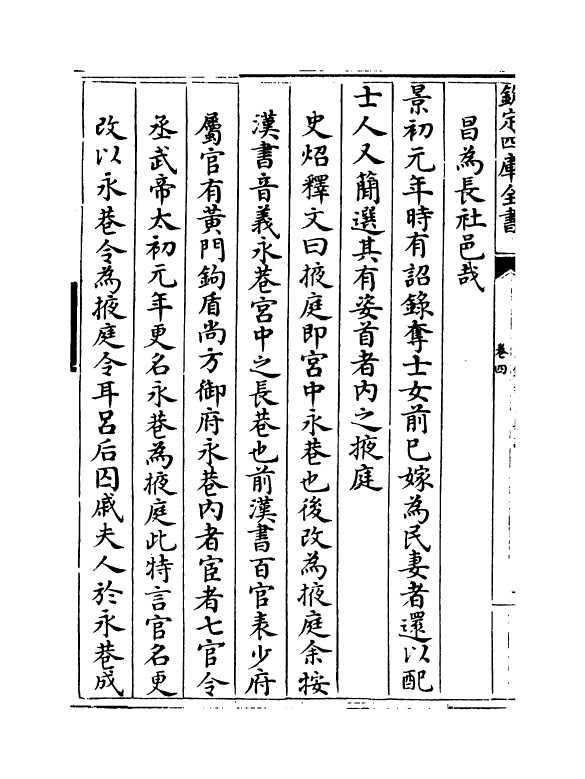 欽定四庫全書
卷四
昌為長社邑哉
景初元年時有詔錄奪士女前已嫁為民妻者還以配
士人又簡選其有姿首者内之掖庭
史炤釋文曰掖庭即宫中永巷也後改為掖庭余按
漢書音義永巷宫中之長巷也前漢書百官表少府
屬官有黄門鉤盾尚方御府永巷内者宦者七官令
丞武帝太初元年更名永巷為掖庭此特言官名更
改以永巷令為掖庭令耳吕后囚戚夫人於永巷成